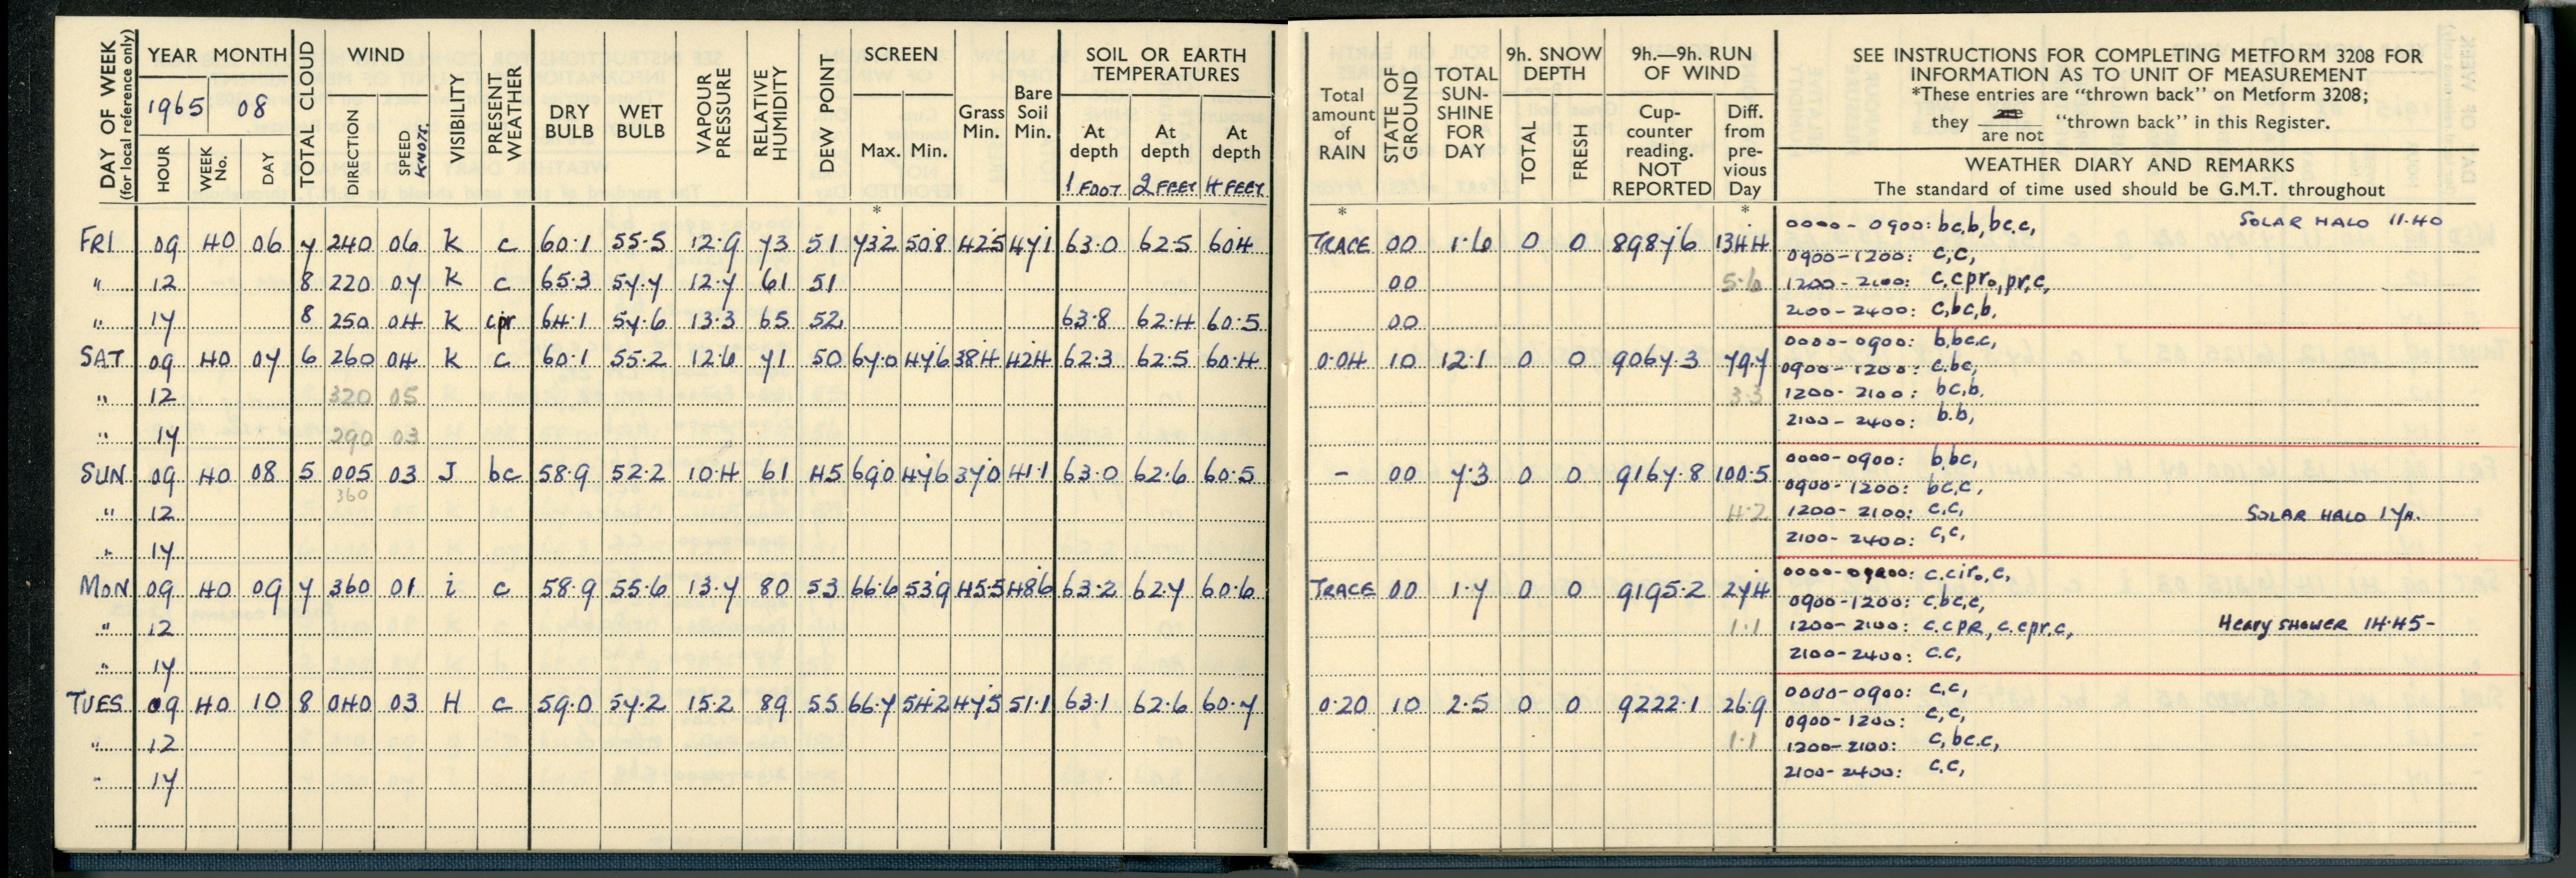 DAY OF WEEK
(for local reference only)
YEAR MONTH
1965 08
HOUR
WEEK No.
DAY
TOTAL CLOUD
WIND
DIRECTION
SPEED KNOTS.
VISIBILITY
PRESENT WEATHER
DRY BULB
WET BULB
VAPOUR PRESSURE
RELATIVE HUMIDITY
DEW POINT
SCREEN
Max. Min.
Grass Min.
Bare Soil Min.
SOIL OR EARTH TEMPERATURES
At depth 1 FOOT
At depth 2 FEET
At depth 4 FEET
*
FRI 09 40 06 7 240 06 k c 60.1 55.5 12.9 73 51 73.2 50.8 42.5 47.1 63.0 62.5 60.4
" 12 8 220 07 k c 65.3 57.7 12.7 61 51
" 17 8 250 04 k cpr 64.1 57.6 13.3 65 52 63.8 62.4 60.5
SAT 09 40 07 6 260 04 k c 60.1 55.2 12.6 71 50 67.0 47.6 38.4 42.4 62.3 62.5 60.4
" 12 320 05
" 17 290 03
SUN 09 40 08 5 005 03 J bc 58.9 52.2 10.4 61 45 69.0 47.6 37.0 41.1 63.0 62.6 60.5
360
" 12
" 17
MON 09 40 09 7 360 01 i c 58.9 55.6 13.7 80 53 66.6 53.9 45.5 48.6 63.2 62.7 60.6
" 12
" 17
TUES 09 40 10 8 040 03 H c 59.0 57.2 15.2 89 55 66.7 54.2 47.5 51.1 63.1 62.6 60.7
" 12
" 17
Total amount of RAIN
STATE OF GROUND
TOTAL SUN-SHINE FOR DAY
9h. SNOW DEPTH
TOTAL
FRESH
9h.—9h. RUN OF WIND
Cup-counter reading. NOT REPORTED
Diff. from pre-vious Day
SEE INSTRUCTIONS FOR COMPLETING METFORM 3208 FOR
INFORMATION AS TO UNIT OF MEASUREMENT
*These entries are "thrown back" on Metform 3208;
they are not "thrown back" in this Register.
WEATHER DIARY AND REMARKS
The standard of time used should be G.M.T. throughout
* *
TRACE 00 1.6 0 0 8987.6 134.4
00 5.6
00
0.04 10 12.1 0 0 9067.3 79.7
3.3
- 00 7.3 0 0 9167.8 100.5
4.2
TRACE 00 1.7 0 0 9195.2 27.4
1.1
0.20 10 2.5 0 0 9222.1 26.9
1.1
0000 - 0900: bc,b,bc,c, SOLAR HALO 11.40
0900-1200: c,c,
1200-2100: c,cpr₀,pr,c,
2100-2400: c,bc,b,
0000-0900: b,bc.c,
0900-1200: c.bc,
1200-2100: bc,b.
2100-2400: b.b,
0000-0900: b,bc,
0900-1200: bc,c,
1200-2100: c,c, SOLAR HALO 17h.
2100-2400: c,c,
0000-0900: c.cir₀,c,
0900-1200: c,bc,c,
1200-2100: c.cpR,c.cpr.c, Heavy SHOWER 14.45-
2100-2400: c.c,
0000-0900: c,c,
0900-1200: c,c,
1200-2100: c,bc.c,
2100-2400: c.c,